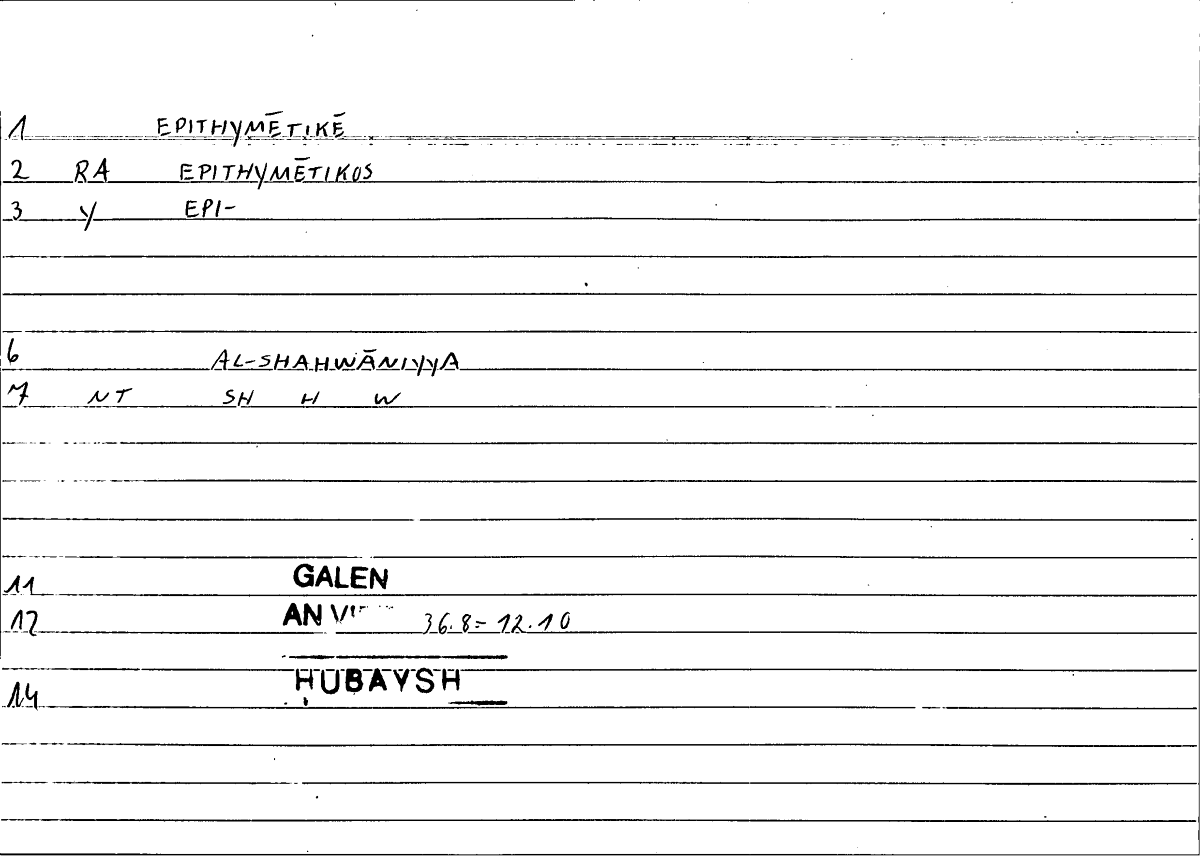 1 EPITHYMĒTIKĒ
2 RA EPITHYMĒTIKOS
3 Y EPI-
6 AL-SHAHWĀNIYYA
7 NT SH H W
11 GALEN
12 AN 36.8 = 12.10
HUBAYSH
14